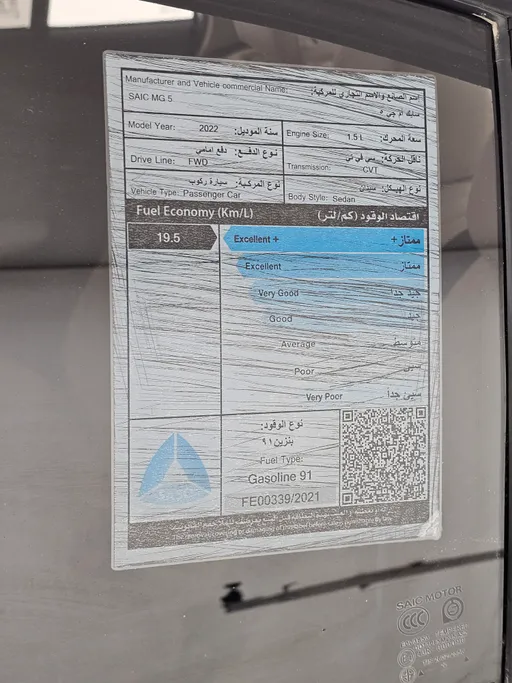 Manufacturer and Vehicle commercial Name: اسم الصانع والاسم التجاري للمركبة:
SAIC MG 5
Model Year: 2022 سنة الموديل:
Engine Size: 1.5 L سعة المحرك:
نوع الدفع: دفع امامي
Drive Line: FWD
ناقل الحركة: سي في تي
Transmission: CVT
نوع المركبة: سيارة ركوب
Vehicle Type: Passenger Car
نوع الهيكل: سيدان
Body Style: Sedan
Fuel Economy (Km/L) اقتصاد الوقود (كم/لتر)
19.5
Excellent + ممتاز+
Excellent ممتاز
Very Good جيد جدا
Good جيد
Average متوسط
Poor سيئ
Very Poor سيئ جدا
نوع الوقود:
بنزين ٩١
Fuel Type:
Gasoline 91
FE00339/2021
SASO
SAIC MOTOR
CCC